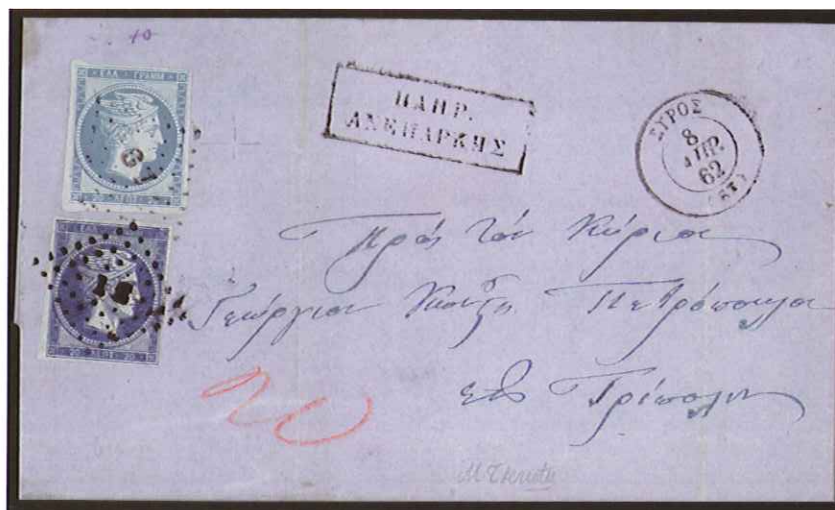 10
ΕΛΛ ΓΡΑΜΜ
ΛΕΠΤ
ΠΛΗΡ.
ΑΝΕΠΑΡΚΗΣ
ΣΥΡΟΣ
8
ΑΠΡ
62
20 ΛΕΠΤ 20
Πρὸς Τὸν Κύριον
Γεώργιον Πετρόπουλον
εἰς Τρίπολιν
20